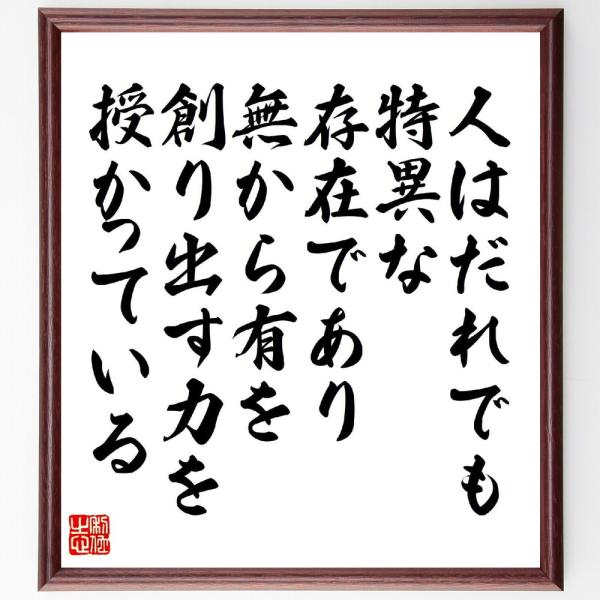 人はだれでも
特異な
存在であり
無から有を
創り出す力を
授かっている